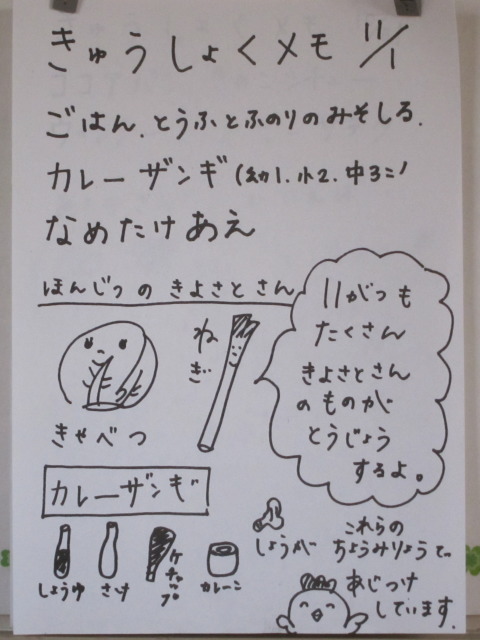 きゅうしょくメモ 11/1
ごはん、とうふとふのりのみそしる、
カレーザンギ(幼1.小2.中3こ)
なめたけあえ
ほんじつのきよさとさん
きゃべつ
ねぎ
11がつも
たくさん
きよさとさん
のものが
とうじょう
するよ。
カレーザンギ
しょうゆ
さけ
ケチャップ
カレーこ
しょうが
これらの
ちょうみりょうで
あじつけ
しています。